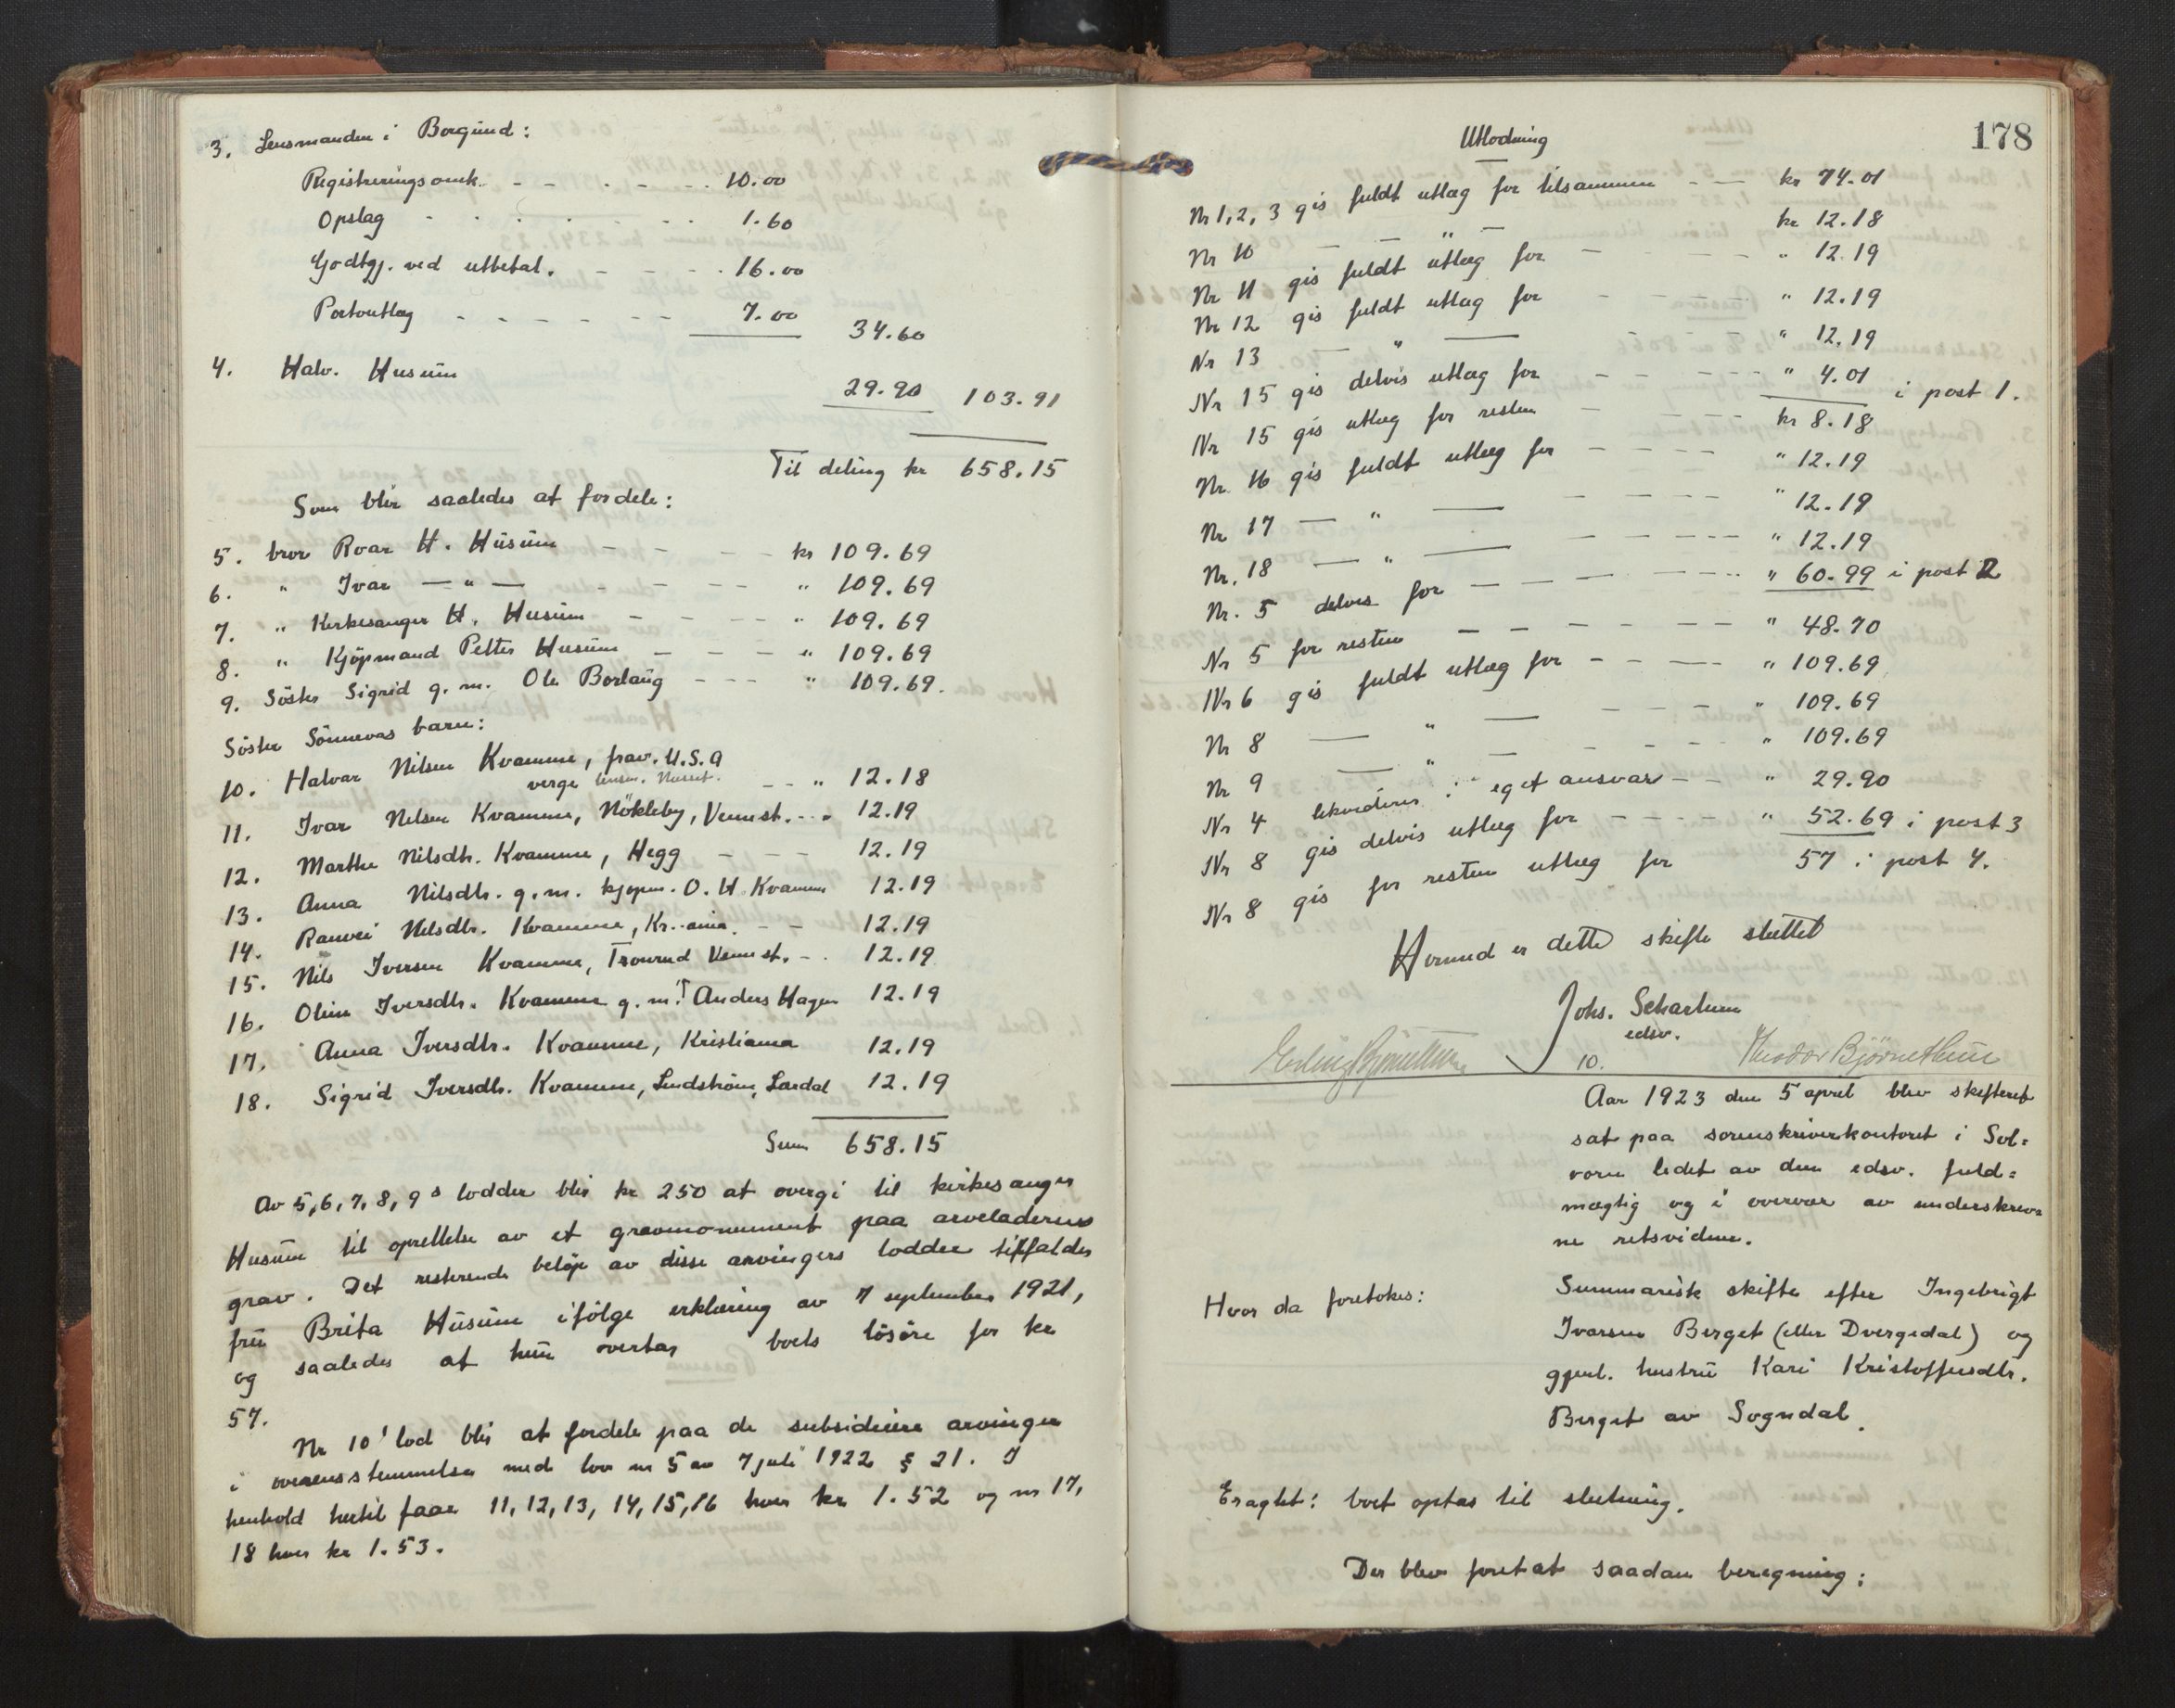 3. Lensmanden i Borgund:
Registreringsomk. - - - - - 10.00
Opslag - - - - - - 1.60
Godtgj. ved utbetal. - - - - 16.00
Portoutlæg - - - - - - 7.00
34.60
4. Halv. Husum
29.90 103.91
Til deling kr 658.15
Som blir saaledes at fordele:
5. bror Roar H. Husum - - - - kr 109.69
6. " Ivar — " — - - - - " 109.69
7. " Kirkesanger H. Husum - - - - " 109.69
8. " Kjöpmand Petter Husum - - - " 109.69
9. Söster Sigrid g. m. Ole Borlaug - - - " 109.69.
Söster Sönnevas barn:
10. Halvar Nilsen Kvamme, frav. U.S.A
verge - - " 12.18
11. Ivar Nilsen Kvamme, Nökleby, Vennest. - - 12.19
12. Marthe Nilsdtr. Kvamme, Hegg - - - 12.19
13. Anna Nilsdtr. g. m. kjøpm. O. H. Kvamme 12.19
14. Ranvei Nilsdtr. Kvamme, Kr.ania. - - 12.19
15. Nils Iversen Kvamme, Vennest. - . 12.19
16. Oline Iversdtr. Kvamme g. m. Anders Hagen 12.19
17. Anna Iversdtr. Kvamme, Kristiania 12.19
18. Sigrid Iversdtr. Kvamme, Lindström, Lærdal 12.19
Sum 658.15
Av 5,6,7,8,9 s lodder blir kr 250 at overgi til kirkesanger
Husum til oprettelse av et gravmonument paa arveladerens
grav. Det resterende beløp av disse arvingers lodder tilfalder
fru Brita Husum ifölge erklæring av 7 september 1921,
og saaledes at hun overtar boets lösöre for kr
57.
Nr 10' lod blir at fordele paa de subsidiære arvinger
i overensstemmelse med lov nr 5 av 7 juli 1922 § 21. I
henhold hertil faar 11, 12, 13, 14, 15, 16 hver kr 1.52 og nr 17,
18 hver kr 1.53.
178
Utlodning
Nr 1, 2, 3 gis fuldt utlæg for tilsammen - — kr 74.01
Nr 10 — — " — kr 12.18
Nr 11 gis fuldt utlæg for - - - - " 12.19
Nr 12 gis fuldt utlæg for - - - - " 12.19
Nr 13 — " — " 12.19
Nr 15 gis delvis utlæg for - - - - " 4.01 i post 1.
Nr 15 gis utlæg for resten - - - - kr 8.18
Nr. 16 gis fuldt utlæg for - - - - " 12.19
Nr 17 — " — - - - - " 12.19
Nr. 18 — " — - - - - " 12.19
Nr. 5 delvis for - - - - - " 60.99 i post 2
Nr 5 for resten - - - - - - " 48.70
Nr 6 gis fuldt utlæg for - - - - " 109.69
Nr 8 — " — - - - " 109.69
Nr 9 — " — - - - " 109.69
Nr 4 likviderer i eget ansvar - - " 29.90
Nr 8 gis delvis utlæg for - - - - " 52.69 i post 3
Nr 8 gis for resten utlæg for 57 i post 4.
Hermed er dette skifte sluttet
Johs. Schartum
edsv.
Erling Bjørnethun 10. Theodor Bjørnethun
Aar 1923 den 5 april blev skifteret
sat paa sorenskriverkontoret i Sol=
vorn ledet av den edsv. fuld=
mægtig og i overvær av underskrev=
ne retsvidner.
Hvor da foretokes: Summarisk skifte efter Ingebrigt
Ivarsen Berget (eller Dvergedal) og
gjenl. hustru Kari Kristoffersdtr.
Berget av Sogndal.
Eragtet: boet optas til slutning.
Der blev foretat saadan beregning: